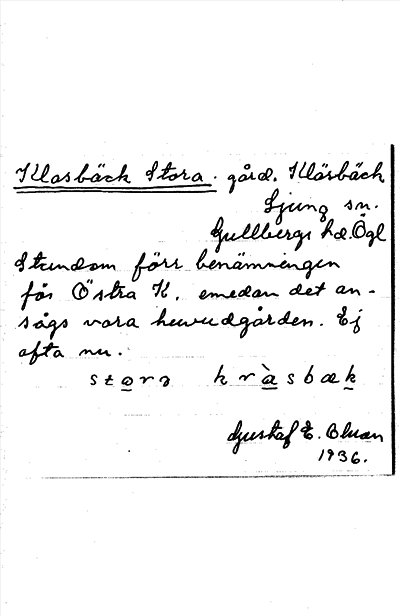 Klasbäck Stora. gård. Kläsbäck
Ljung sn.
Gullbergs hd. Ögl
Stundom förr benämningen
för Östra K. emedan det an-
sågs vara huvudgården. Ej
ofta nu.
stọrə kràsbæk
Gustaf E. Bluan
1936.